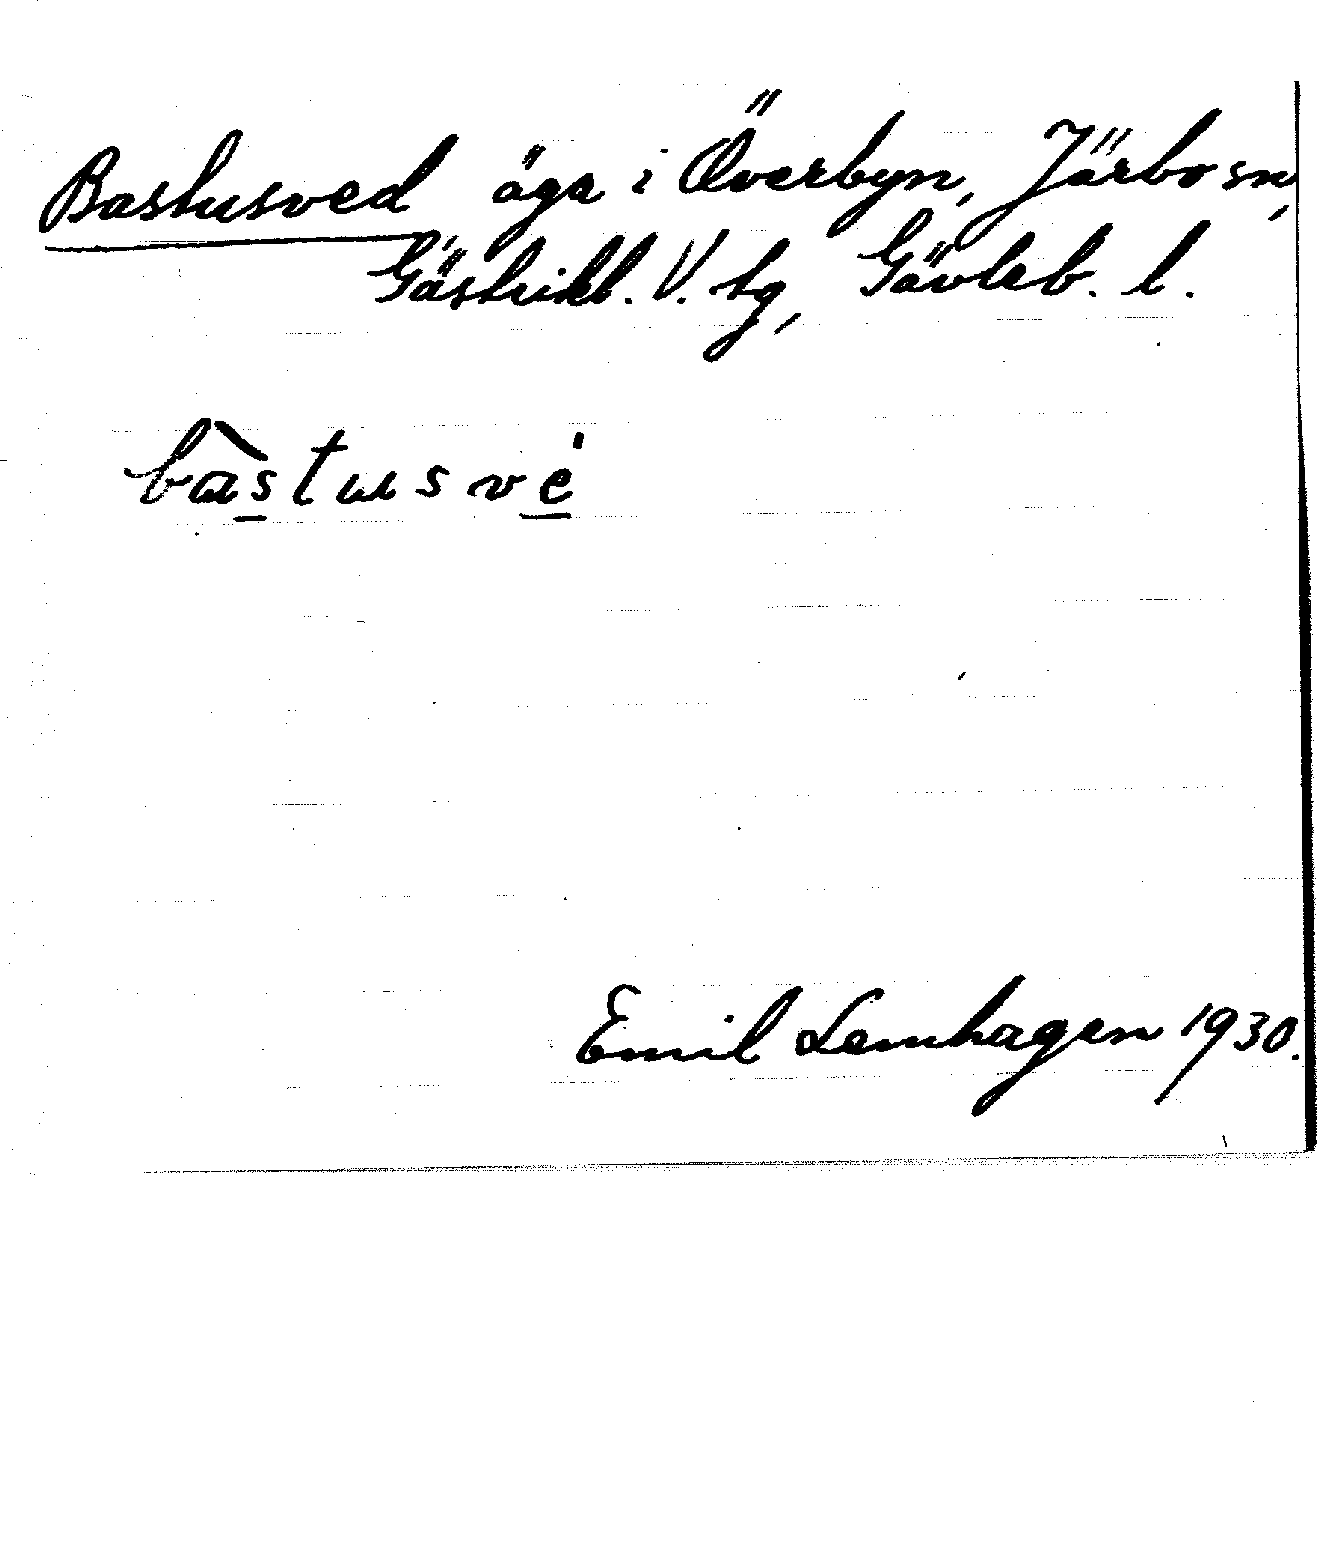 Bastusved äga i Överbyn, Järbo sn,
Gästrikl. V. tg, Gävleb. l.
bàstusvé
Emil Lemhagen 1930.